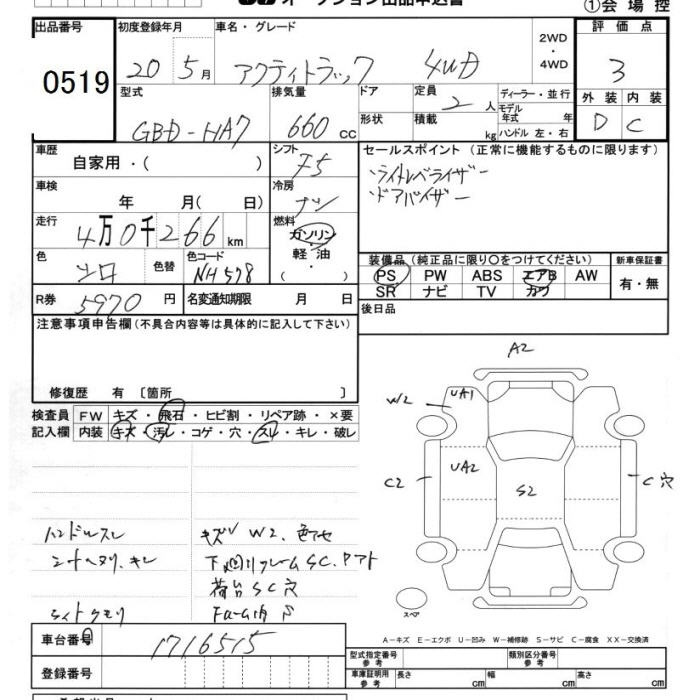 オークション出品申込書
①会場控
出品番号 初度登録年月 車名・グレード 2WD・4WD 評価点
0519 20 5月 アクティトラック 4WD 3
型式 排気量 ドア 定員 2人 ディーラー・並行 外装 内装
形状 積載 kg モデル年式 年 ハンドル 左・右
GBD-HA7 660cc D C
車歴 自家用・( ) シフト F5 セールスポイント(正常に機能するものに限ります)
ライトレベライザー
ドアバイザー
車検 年 月( 日) 冷房 ナシ
走行 4万0千266km 燃料 ガソリン・軽油・( )
色 シロ 色替 色コード NH578
装備品(純正品に限り○をつけてください) 新車保証書
PS PW ABS エアB AW 有・無
SR ナビ TV カワ
R券 5970円 名変通知期限 月 日 後日品
注意事項申告欄(不具合内容等は具体的に記入して下さい)
修復歴 有 〔箇所 〕
検査員記入欄 FW キズ・飛石・ヒビ割・リペア跡・×要
内装 キズ・汚レ・コゲ・穴・スレ・キレ・破レ
A2
W2 UA1
C2 UA2 S2 C穴
スペア
ハンドルスレ キズ W2、色アセ
シートヘタリ、キレ 下廻リフレームSC、アト
荷台SC穴
ライトクモリ
A-キズ E-エクボ U-凹み W-補修跡 S-サビ C-腐食 XX-交換済
車台番号 1716515
登録番号
型式指定番号 参考 類別区分番号 参考
車庫証明用 参考 長さ cm 幅 cm 高さ cm